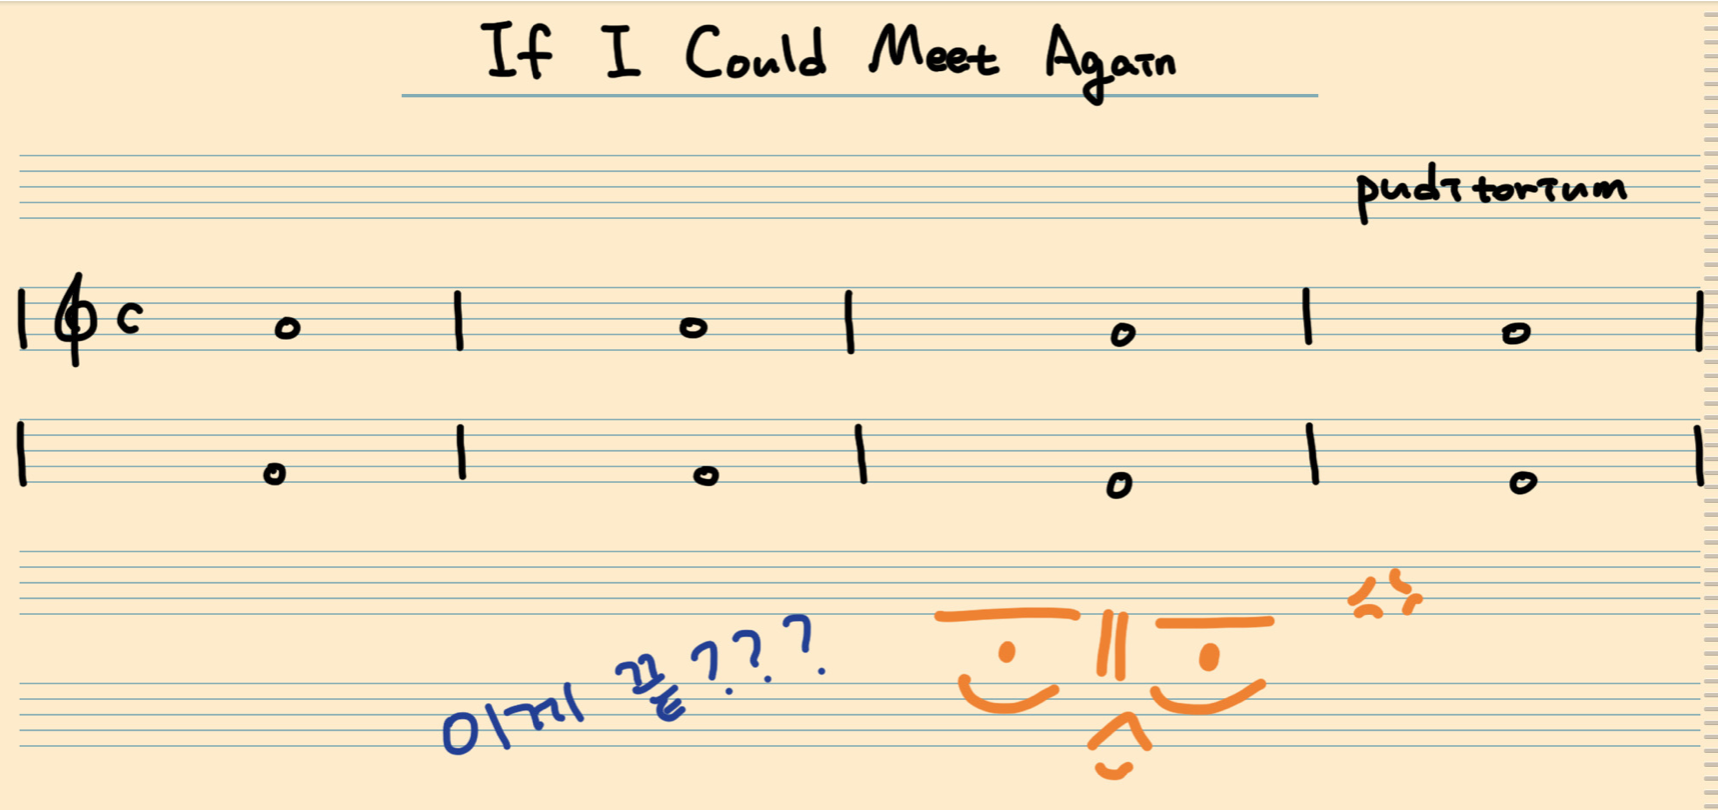 If I Could Meet Again
puditorium
이게 끝???